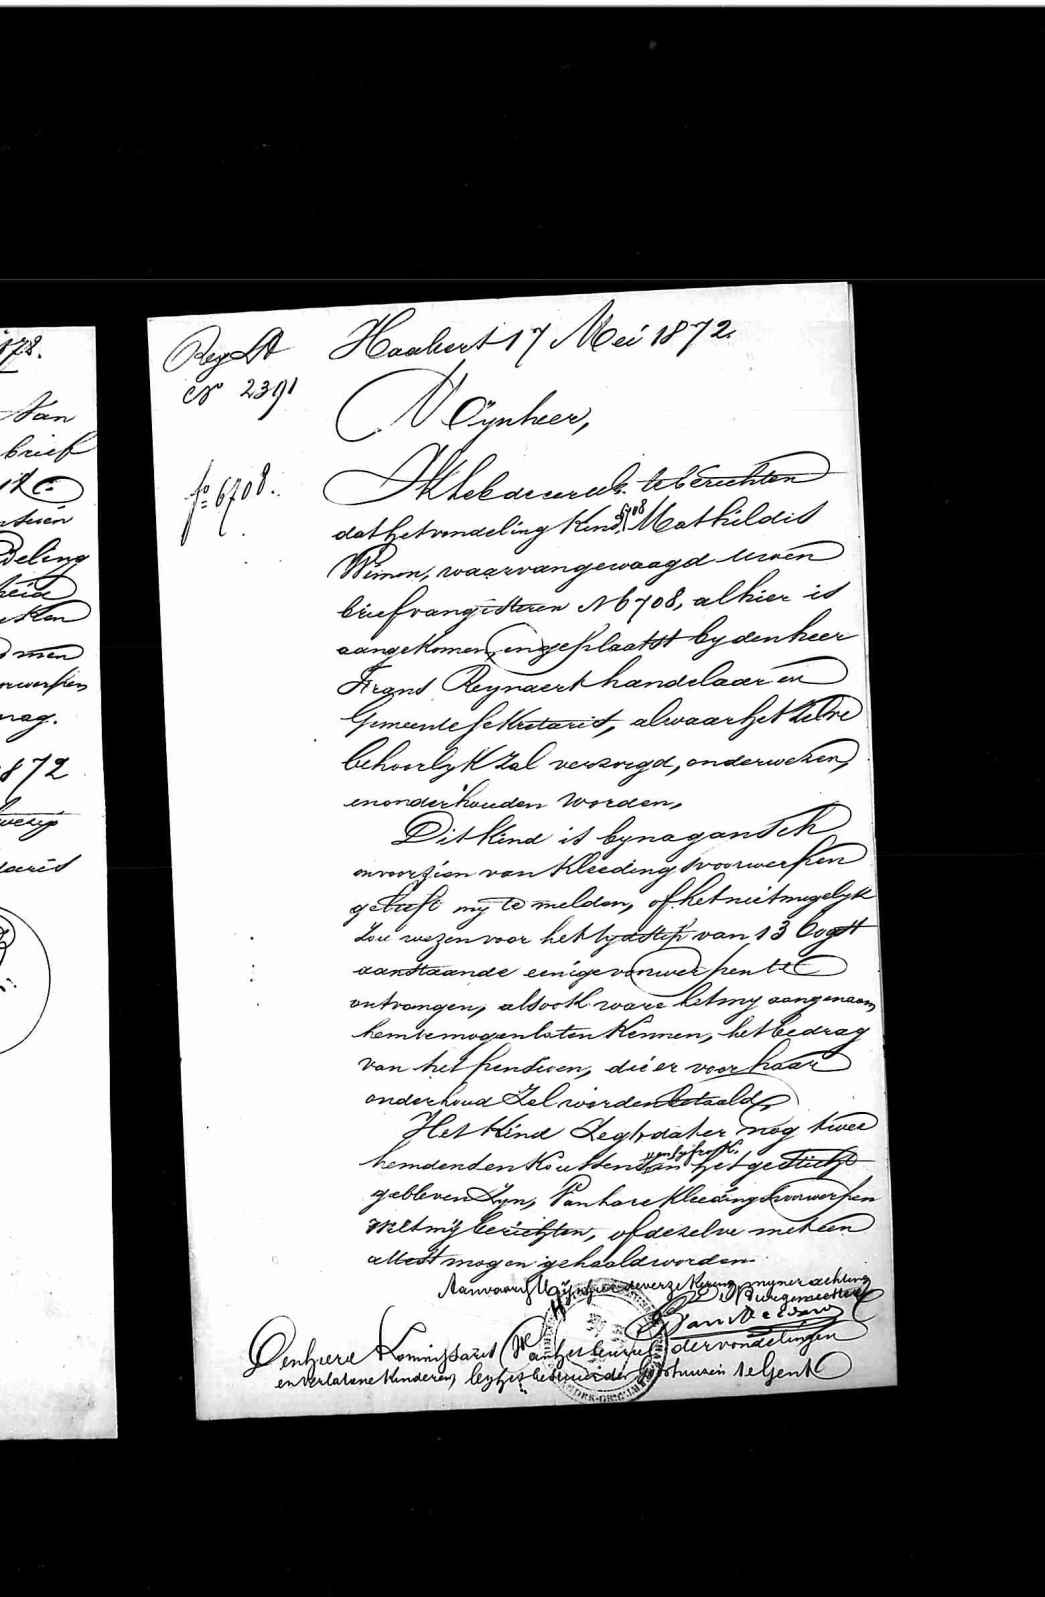 178.
Van
brief
deling
heid
men
mag.
1872
Reg LA
N 2391
Haaltert 17 Mei 1872.
Mÿnheer,
fo 6708.
Ik heb de eer U te berichten
dat het vondeling Kind, 6708 Mathildis
Wimon, waarvan gewaagd Uwen
brief van gisteren N 6708, alhier is
aangekomen, en geplaatst by den heer
Frans Reynaert handelaar en
Gemeente sekretaris, alwaar het zelve
behoorlyk zal verzorgd, onderwezen,
en onderhouden worden,
Dit Kind is byna gansch
onvoorzien van Kleedingsvoorwerpen
gelieft my te melden, of het niet mogelyk
zou wezen voor het tydstip van 13 Oogst
aanstaande eenige voorwerpen te
ontvangen, alsook ware het my aangenaam,
te mogen laten Kennen, het bedrag
van het pensioen, die er voor haar
onderhoud zal worden betaald,
Het Kind Zegt dat er nog twee
hemden en Koussen in het gesticht
gebleven zyn, Van hare Kleedingsvoorwerpen
Wilt mij berichten, of dezelve met een
attest mogen gehaald worden.
Aanvaard Mÿnheer de verzekering myner achting
De Burgemeester
Den heere Kommissaris Van het bureel der vondelingen
en verlatene Kinderen, by het bestuur der Godshuizen te Gent